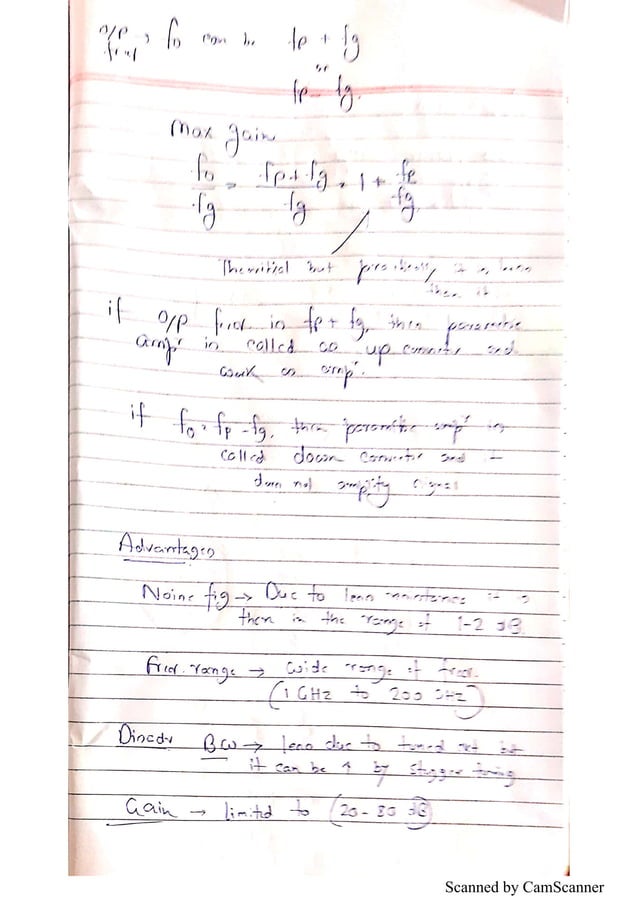 O/P freq, fo can be fp + fg
or
fp - fg.
Max gain
fo/fg = fp + fg/fg = 1 + fp/fg
but practically it is less
then it
if O/P freq is fp + fg, then
amp^r is called as up and
work as amp^r.
if fo = fp - fg, then amp^r is
called down and
does not amplify signal
Advantages
Noise fig → Due to less it is
then in the range of 1-2 dB
Freq. range → wide range of freq.
(1 GHz to 200 GHz)
Disadv BW → less due to tuned but
it can be ↑ by tuning
Gain → limited to (20 - 80 dB)
Scanned by CamScanner